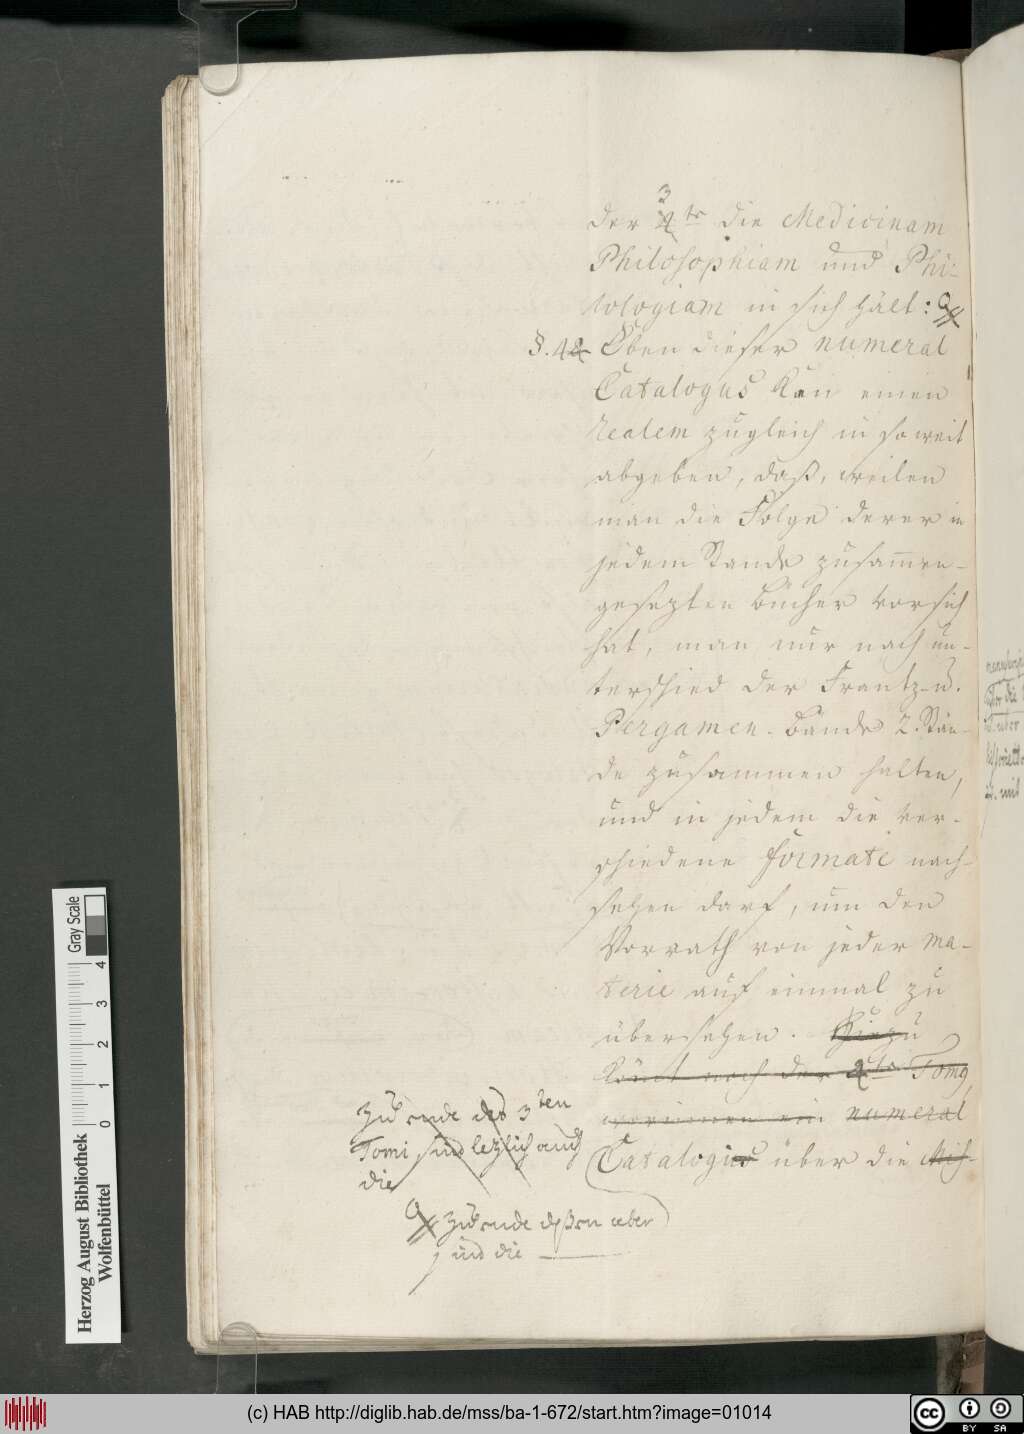 der 3te die Medicinam
Philosophiam und Phi-
lologiam in sich hält:
§. 4 Eben dieser numeral
Catalogus kan einen
realem zugleich in so weit
abgeben, daß, weilen
man die Folge derer in
jedem Stande zusammen-
gesezten Bücher vor sich
hat, man nur nach un-
terschied der Frantz- u.
Pergamen-Bände 2. Stän-
de zusammen halten,
und in jedem die ver-
schiedene formate nach-
sehen darf, um den
Vorrath von jeder ma-
terie auf einmal zu
übersehen. Hiezu
kömt noch der 4te Tomus,
worinnen ein numeral
Catalogus über die Mis-
zu ende des 3ten
Tomi sind lezlich auch
die
zu ende deßen aber
sind die
Gray Scale
0 1 2 3 4
Herzog August Bibliothek
Wolfenbüttel
(c) HAB http://diglib.hab.de/mss/ba-1-672/start.htm?image=01014
cc BY SA